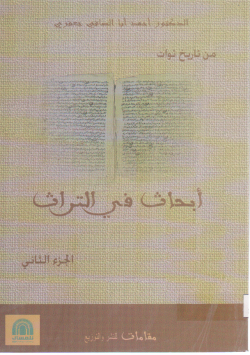 الدكتور احمد أبا الصافي جعفري
من تاريخ توات
أبحاث في التراث
الجزء الثاني
مقامات للنشر والتوزيع